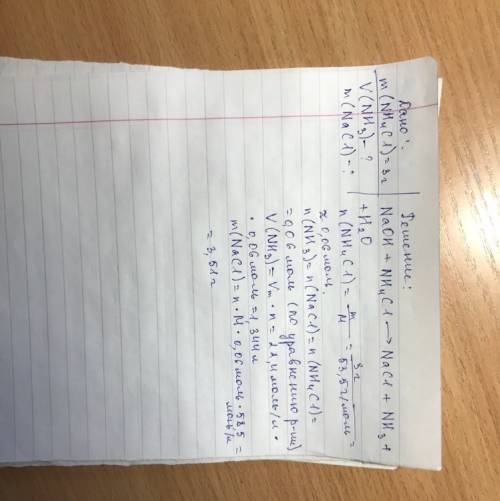 Дано:
m(NH4Cl)=3г
V(NH3)-?
m(NaCl)-?
Решение:
NaOH + NH4Cl → NaCl + NH3 +
+ H2O
n(NH4Cl) = m/M = 3г/53,5г/моль =
≈ 0,06 моль.
n(NH3) = n(NaCl) = n(NH4Cl) =
= 0,06 моль (по уравнению р-ии)
V(NH3) = Vm · n = 22,4 моль/л ·
· 0,06 моль = 1,344 л
m(NaCl) = n · M · 0,06 моль · 585 моль/л =
= 3,51г